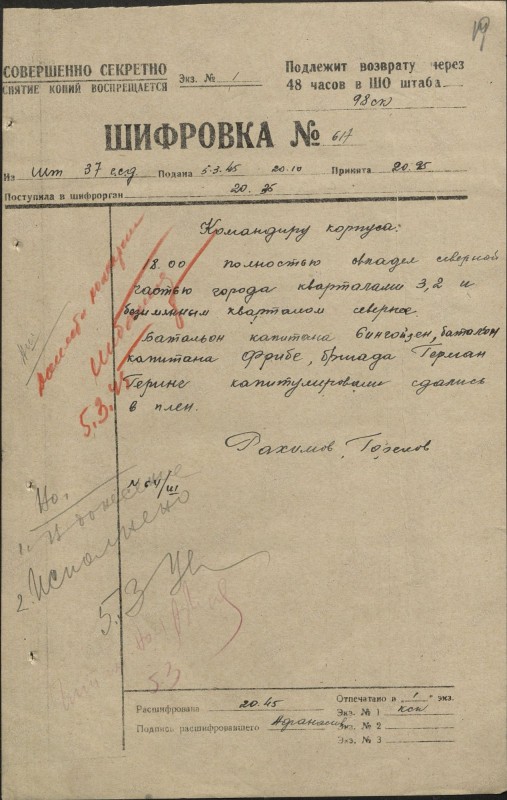 19
СОВЕРШЕННО СЕКРЕТНО
СНЯТИЕ КОПИЙ ВОСПРЕЩАЕТСЯ
Экз. № 1
Подлежит возврату через
48 часов в ШО штаба
98 ск
ШИФРОВКА № 617
Из шт 37 гсд Подана 5.3.45 20.10 Принята 20.25
Поступила в шифрорган 20.35
Командиру корпуса:
18.00 полностью овладел северной
частью города кварталами 3,2 и
безимянным кварталом севернее.
Батальон капитана батальон
капитана Фрибе, бригада Герман
Геринг капитулировали сдались
в плен.
Рахимов,
5.3.45
№ 64/III
Но.
1. В донесение
2. Исполнено
5.3
5.3
Расшифрована 20.45
Подпись расшифровавшего Афанасьев
Отпечатано в 1 экз.
Экз. № 1 кск
Экз. № 2
Экз. № 3